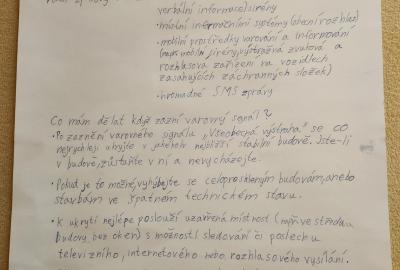 verbální informace) sirény
• místní informační systémy (obecní rozhlas)
• mobilní prostředky varování a informování
(např. mobilní sirény, výstražná zvuková a
rozhlasová zařízení na vozidlech
zasahujících záchranných složek)
• hromadné SMS zprávy
Co mám dělat když zazní varovný signál?
• Po zaznění varovného signálu „Všeobecná výstraha" se co
nejrychleji ukryjte v jakékoliv nejbližší stabilní budově. Jste-li
v budově, zůstaňte v ní a nevycházejte.
• Pokud je to možné, vyhýbejte se celoproskleným budovám, anebo
stavbám ve špatném technickém stavu.
• K ukrytí nejlépe poslouží uzavřená místnost (např. ve středu
budovy, bez oken) s možností sledování či poslechu
televizního, internetového nebo rozhlasového vysílání.